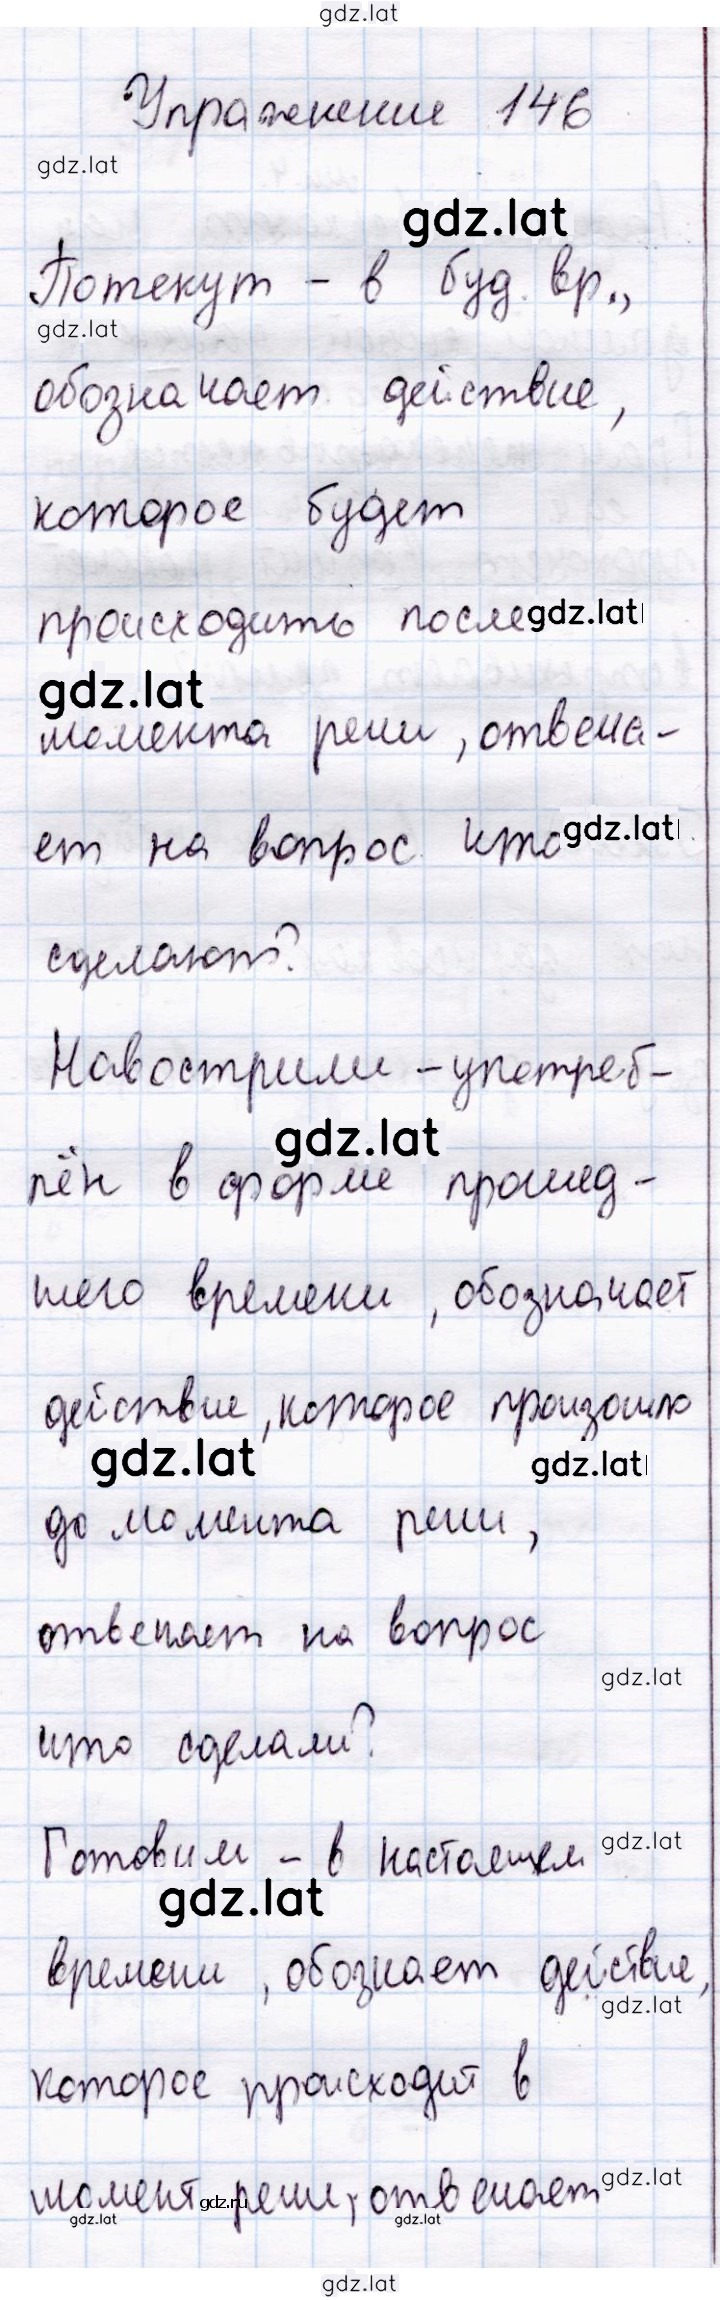 gdz.lat
Упражнение 146
gdz.lat
gdz.lat
Потекут - в буд. вр.,
gdz.lat
обозначает действие,
которое будет
происходить после gdz.lat
gdz.lat
момента речи, отвеча-
ет на вопрос что gdz.lat
сделают?
Навострили - употреб-
gdz.lat
лён в форме прошед-
шего времени, обозначает
действие, которое произошло
gdz.lat gdz.lat
до момента речи,
отвечает на вопрос
gdz.lat
что сделали?
Готовим - в настоящем gdz.lat
gdz.lat
времени, обозначает действие,
gdz.lat
которое происходит в
момент речи, отвечает gdz.lat
gdz.ru
gdz.lat gdz.lat
gdz.lat